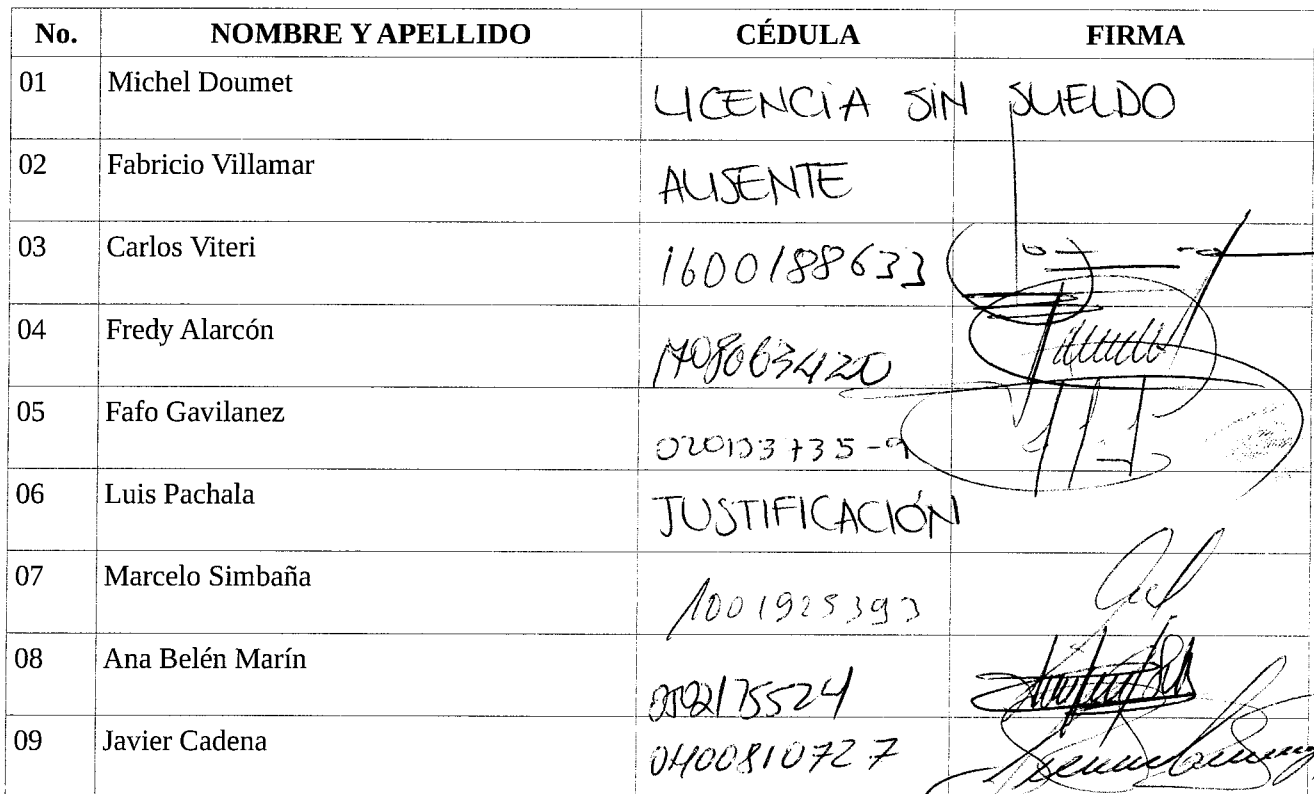 No. NOMBRE Y APELLIDO CÉDULA FIRMA
01 Michel Doumet LICENCIA SIN SUELDO
02 Fabricio Villamar AUSENTE
03 Carlos Viteri 1600188633
04 Fredy Alarcón 1708063420
05 Fafo Gavilanez 020133735-9
06 Luis Pachala JUSTIFICACIÓN
07 Marcelo Simbaña 1001925393
08 Ana Belén Marín 0502175524
09 Javier Cadena 0400810727